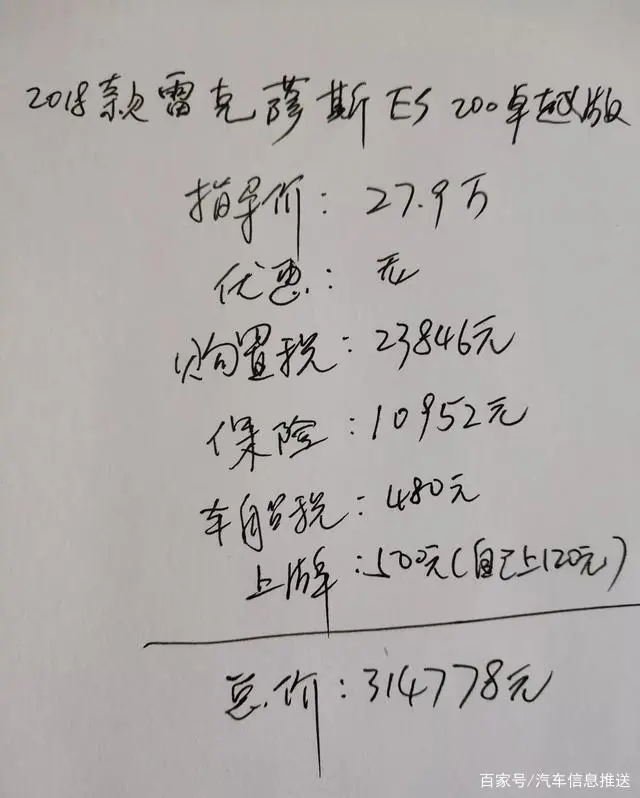 2018款雷克萨斯ES 200卓越版
指导价：27.9万
优惠：无
购置税：23846元
保险：10952元
车船税：480元
上牌：500元(自己上120元)
总价：314778元
百家号/汽车信息推送